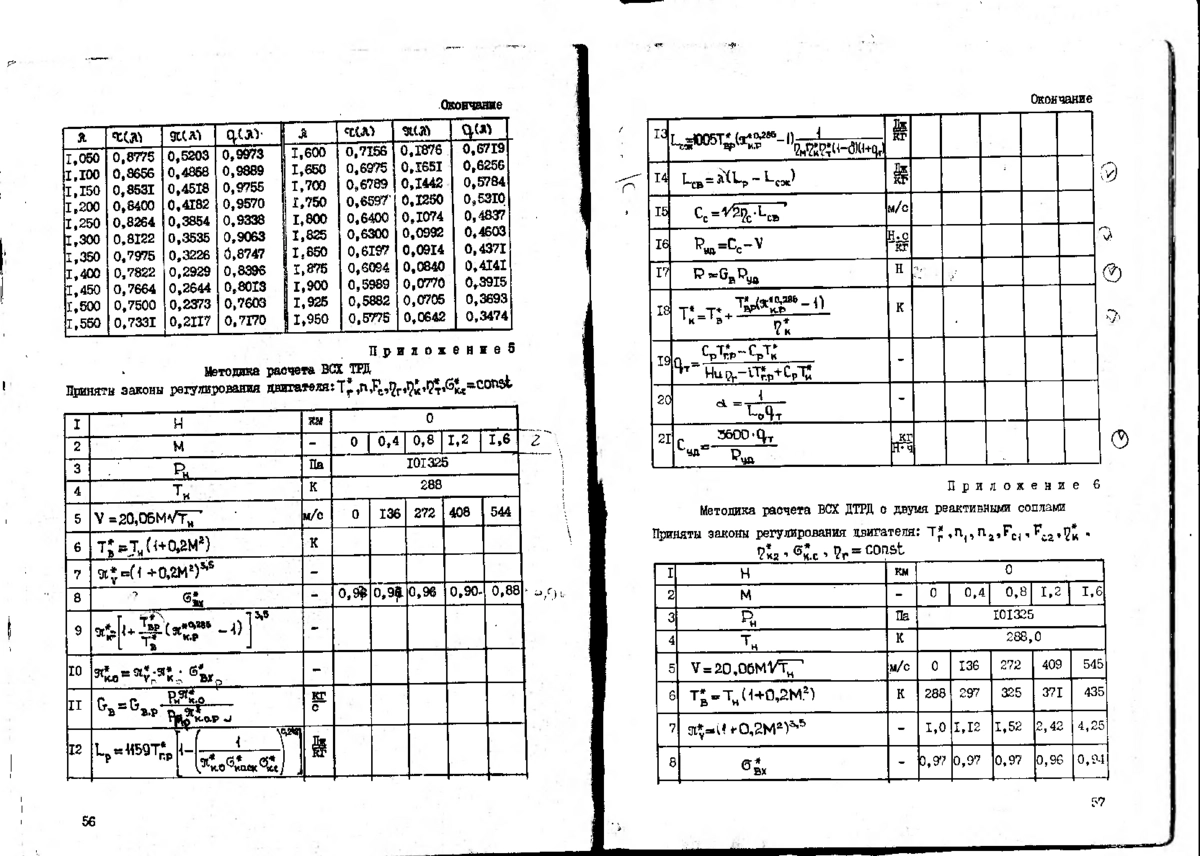 Окончание
λ τ(λ) π(λ) q(λ) λ τ(λ) π(λ) q(λ)
I,050 0,8775 0,5203 0,9973 I,600 0,7156 0,1876 0,6719
I,100 0,8656 0,4868 0,9889 I,650 0,6975 0,1651 0,6256
I,150 0,8531 0,4518 0,9755 I,700 0,6789 0,1442 0,5784
I,200 0,8400 0,4182 0,9570 I,750 0,6597 0,1250 0,5310
I,250 0,8264 0,3854 0,9338 I,800 0,6400 0,1074 0,4837
I,300 0,8122 0,3535 0,9063 I,825 0,6300 0,0992 0,4603
I,350 0,7975 0,3226 0,8747 I,850 0,6197 0,0914 0,4371
I,400 0,7822 0,2929 0,8396 I,875 0,6094 0,0840 0,4141
I,450 0,7664 0,2644 0,8013 I,900 0,5989 0,0770 0,3915
I,500 0,7500 0,2373 0,7603 I,925 0,5882 0,0705 0,3693
I,550 0,7331 0,2117 0,7170 I,950 0,5775 0,0642 0,3474
Приложение 5
Методика расчета ВСХ ТРД
Приняты законы регулирования двигателя: T*г, n, Fc, ηг, η*к, η*т, σ*кс = const
I H км 0
2 M – 0 0,4 0,8 I,2 I,6 2
3 Pн Па 101325
4 Tн К 288
5 V = 20,06M√Tн м/с 0 136 272 408 544
6 T*в = Tн(1+0,2M²) К
7 π*v = (1+0,2M²)^3,5 –
8 σ*вх – 0,98 0,96 0,90 0,88
9 π*к = [1+ T*вр/T*в (π*к.р^0,286 – 1)]^3,5 –
10 π*к.о = π*v · π*к · σ*вх –
II Gв = Gв.р Pн π*к.о / Pн.р π*к.о.р кг/с
12 Lр = 1159T*г.р [1–(1/(π*к.о σ*каск σ*кс))] Дж/кг
56
Окончание
13 Lсж = 1005T*вр(π*к.р^0,286 – 1) 1/(ηм η*к η*т (1–δ)(1+qт)) Дж/кг
14 Lсв = a(Lр – Lсж) Дж/кг
15 Cс = √2ηс·Lсв м/с
16 Rуд = Cс – V Н·с/кг
17 R = Gв Rуд Н
18 T*к = T*в + T*вр(π*к.р^0,286 – 1)/η*к К
19 qт = (Cр T*г.р – Cр T*к)/(Hu ηг – iT*г.р + Cр T*н) –
20 α = 1/(L₀ qт) –
21 Cуд = 3600·qт/Rуд кг/Н·ч
Приложение 6
Методика расчета ВСХ ДТРД с двумя реактивными соплами
Приняты законы регулирования двигателя: T*г, n₁, n₂, Fc1, Fc2, η*к,
η*к2, σ*к.с, ηг = const
I H км 0
2 M – 0 0,4 0,8 I,2 I,6
3 Pн Па 101325
4 Tн К 288,0
5 V = 20,06M√Tн м/с 0 136 272 409 545
6 T*в = Tн(1+0,2M²) К 288 297 325 371 435
7 π*v = (1+0,2M²)^3,5 – I,0 I,12 I,52 2,42 4,25
8 σ*вх – 0,97 0,97 0,97 0,96 0,94
57